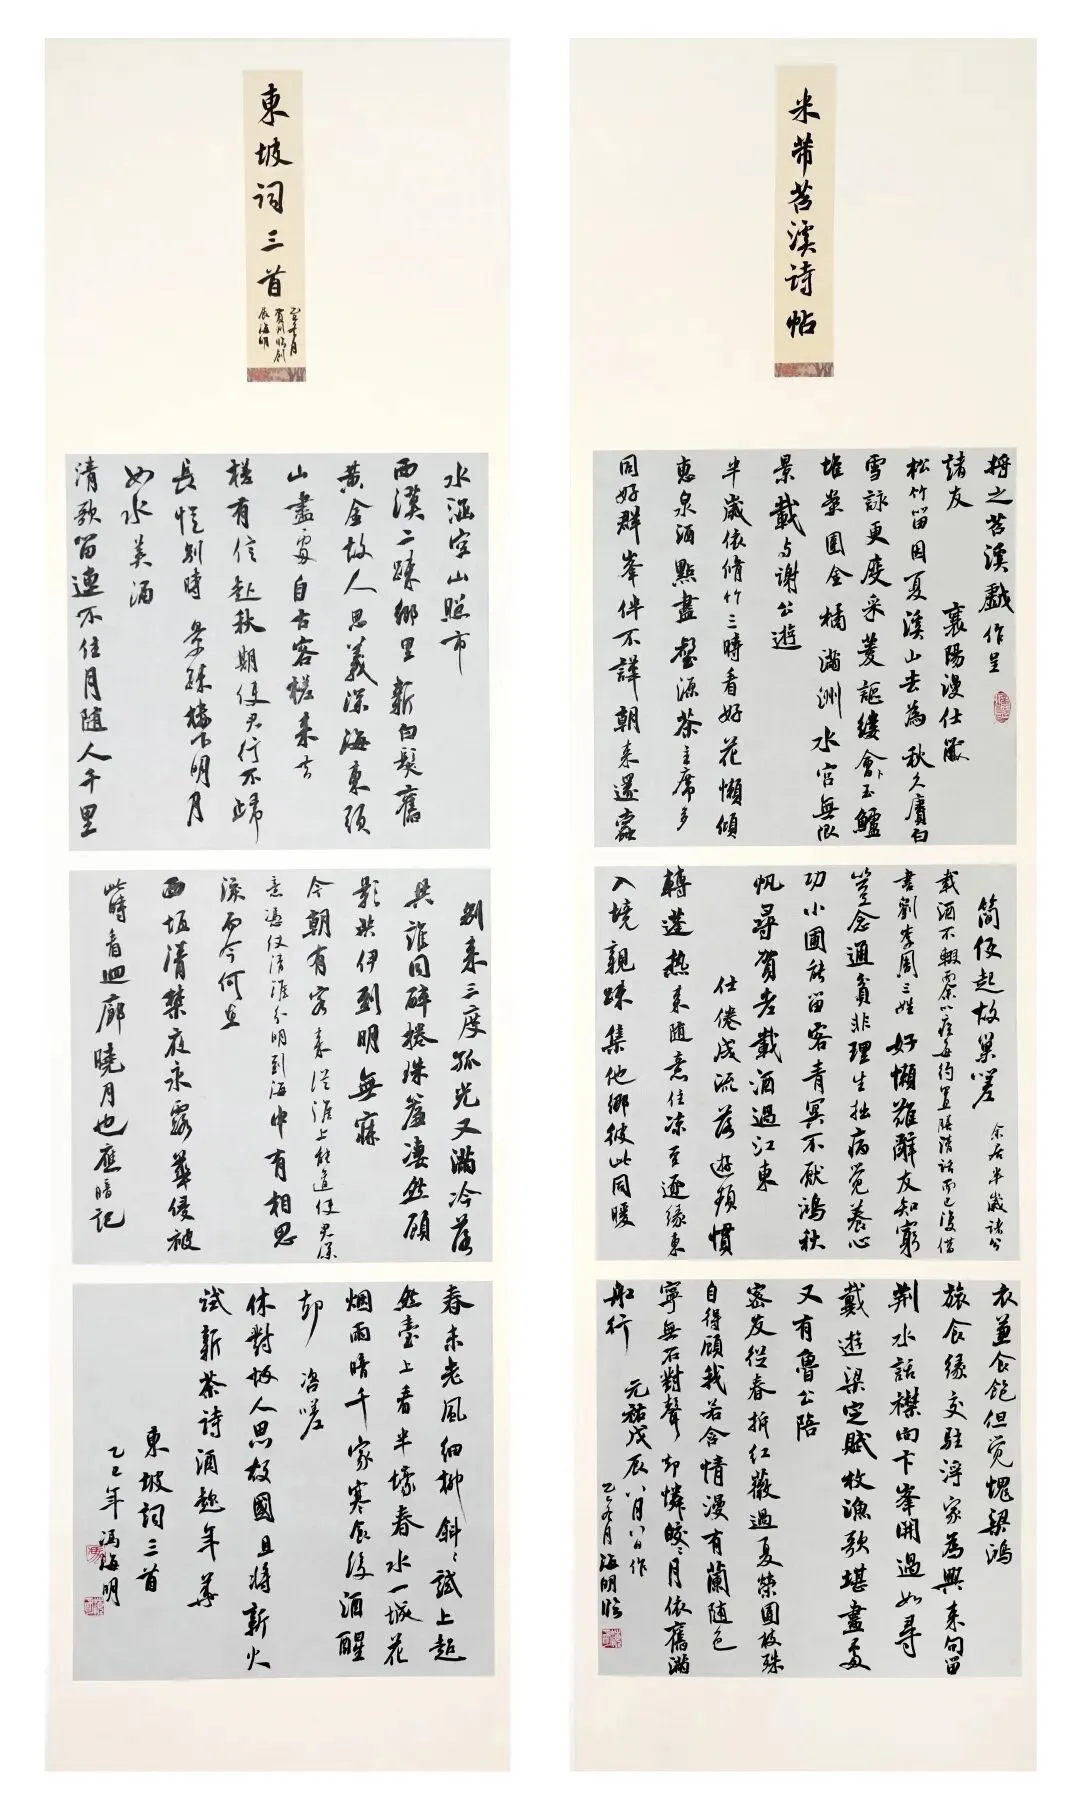 米芾苕溪诗帖
将之苕溪戲作呈
諸友 襄陽漫仕黻
松竹留因夏溪山去為秋久賡白
雪詠更度采菱謳縷會卜玉鱸
堆案團金橘滿洲水宫無限
景載与謝公遊
半歲依脩竹三時看好花懶傾
惠泉酒點盡壑源茶主席多
同好群峯伴不譁朝来還蠹
簡便起故巢嗟 余居半歲诸公
载酒不輟而余以疾每約置膳清话而已復借
書劉李周三姓 好懶難辭友知窮
豈念通貧非理生拙病覺養心
功小圃能留客青冥不厭鴻秋
帆尋賀老載酒過江東
仕倦成流落遊頻慣
轉蓬熱来随意住凉至逐缘東
入境親疎集他鄉彼此同暖
衣兼食飽但覺愧梁鴻
旅食缘交駐浮家為興来句留
荆水話襟向卞峯開過如尋
戴遊梁定賦枚漁歌堪畫處
又有魯公陪
密友從春拆红薇過夏榮團枝殊
自得顧我若含情漫有蘭随色
寧無石對聲却憐皎〻月依舊滿
船行
元祐戊辰八月八日作
乙巳冬月海明临
東坡词三首
水涵空山照市
西漢二疎鄉里新白髮舊
黄金故人恩義深海東頭
山盡處自古客槎来去
槎有信赴秋期使君行不歸
長恨别時 景疎楼下明月
如水美酒
清歌留連不住月随人千里
别来三度孤光又滿冷落
共誰同醉捲珠簾凄然顧
影共伊到明無寐
今朝有客来從淮上能道使君深
意憑仗清淮分明到海中有相思
淚而今何在
西垣清禁夜永露華侵被
此時看迴廊曉月也應暗記
春未老風细柳斜〻試上超
然臺上看半壕春水一城花
烟雨暗千家寒食後酒醒
却咨嗟
休對故人思故國且将新火
試新茶詩酒趁年華
東坡詞三首
乙巳年馮海明